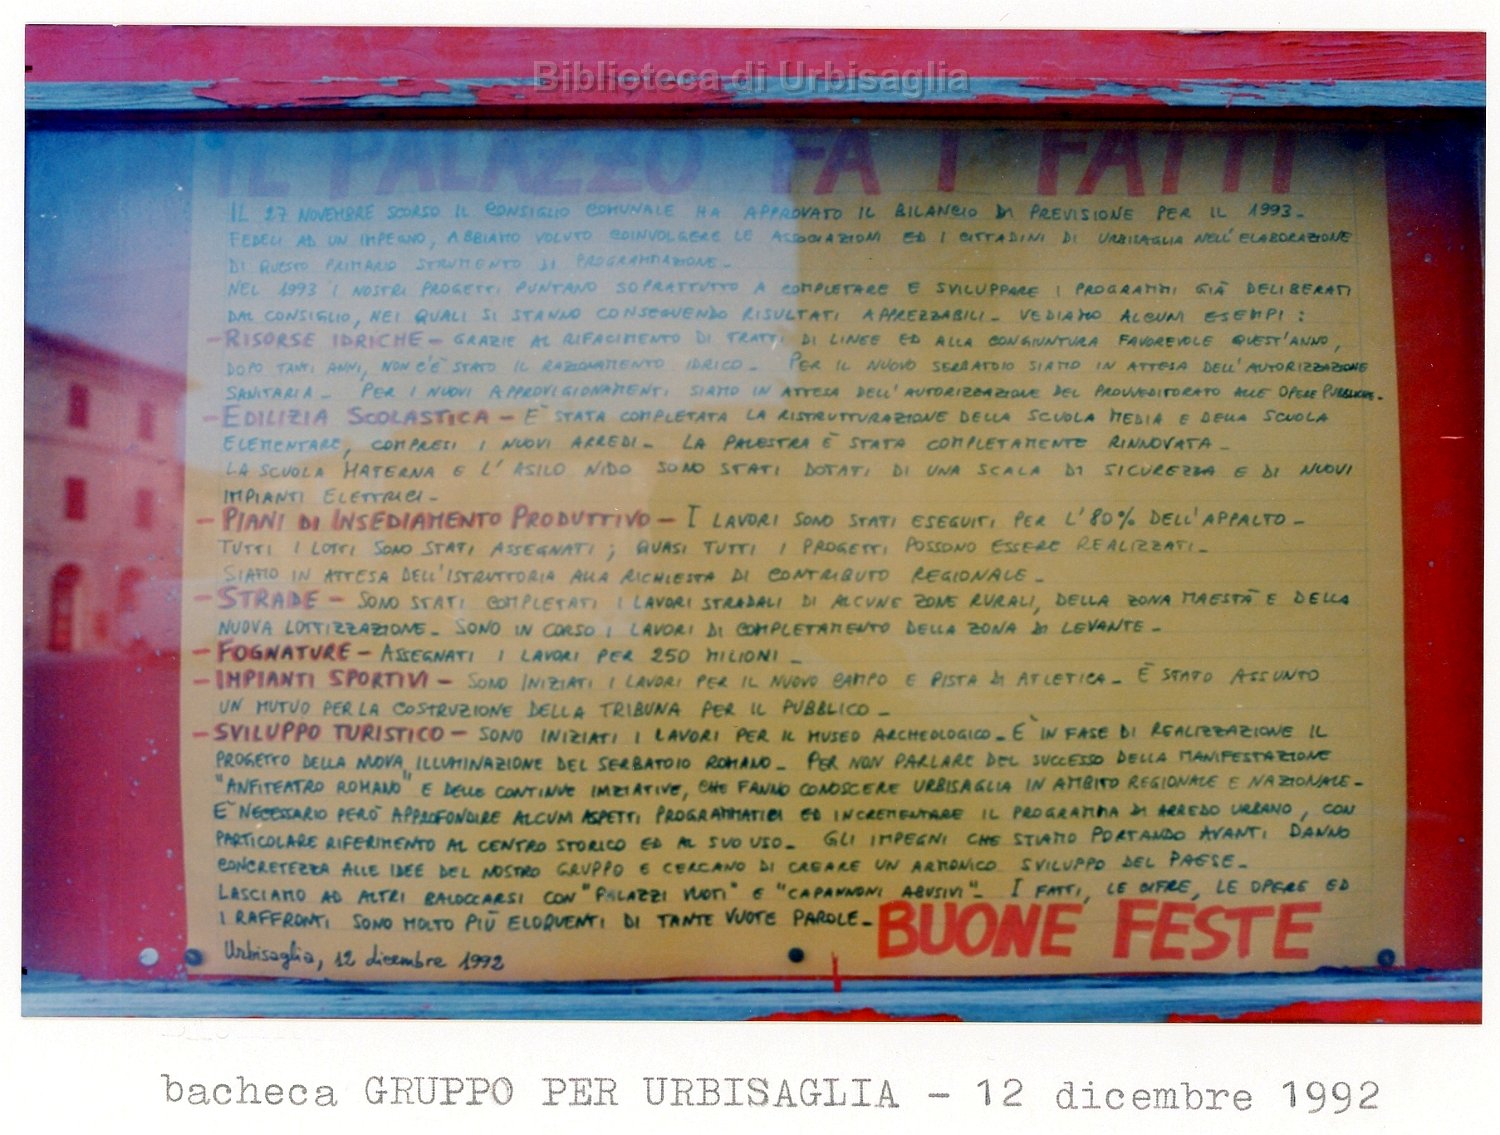 Biblioteca di Urbisaglia
IL PALAZZO FA I FATTI
IL 27 NOVEMBRE SCORSO IL CONSIGLIO COMUNALE HA APPROVATO IL BILANCIO DI PREVISIONE PER IL 1993-
FEDELI AD UN IMPEGNO, ABBIAMO VOLUTO COINVOLGERE LE ASSOCIAZIONI ED I CITTADINI DI URBISAGLIA NELL'ELABORAZIONE
DI QUESTO PRIMARIO STRUMENTO DI PROGRAMMAZIONE-
NEL 1993 I NOSTRI PROGETTI PUNTANO SOPRATTUTTO A COMPLETARE E SVILUPPARE I PROGRAMMI GIÀ DELIBERATI
DAL CONSIGLIO, NEI QUALI SI STANNO CONSEGUENDO RISULTATI APPREZZABILI- VEDIAMO ALCUNI ESEMPI:
-RISORSE IDRICHE- GRAZIE AL RIFACIMENTO DI TRATTI DI LINEE ED ALLA CONGIUNTURA FAVOREVOLE QUEST'ANNO,
DOPO TANTI ANNI, NON C'È STATO IL RAZIONAMENTO IDRICO- PER IL NUOVO SERBATOIO SIAMO IN ATTESA DELL'AUTORIZZAZIONE
SANITARIA- PER I NUOVI APPROVIGIONAMENTI SIAMO IN ATTESA DELL'AUTORIZZAZIONE DEL PROVVEDITORATO ALLE OPERE PUBBLICHE-
-EDILIZIA SCOLASTICA- E' STATA COMPLETATA LA RISTRUTTURAZIONE DELLA SCUOLA MEDIA E DELLA SCUOLA
ELEMENTARE, COMPRESI I NUOVI ARREDI- LA PALESTRA È STATA COMPLETAMENTE RINNOVATA-
LA SCUOLA MATERNA E L'ASILO NIDO SONO STATI DOTATI DI UNA SCALA DI SICUREZZA E DI NUOVI
IMPIANTI ELETTRICI-
-PIANI DI INSEDIAMENTO PRODUTTIVO- I LAVORI SONO STATI ESEGUITI PER L'80% DELL'APPALTO-
TUTTI I LOTTI SONO STATI ASSEGNATI; QUASI TUTTI I PROGETTI POSSONO ESSERE REALIZZATI-
SIAMO IN ATTESA DELL'ISTRUTTORIA ALLA RICHIESTA DI CONTRIBUTO REGIONALE-
-STRADE- SONO STATI COMPLETATI I LAVORI STRADALI DI ALCUNE ZONE RURALI, DELLA ZONA MAESTÀ E DELLA
NUOVA LOTTIZZAZIONE- SONO IN CORSO I LAVORI DI COMPLETAMENTO DELLA ZONA DI LEVANTE-
-FOGNATURE- ASSEGNATI I LAVORI PER 250 MILIONI-
-IMPIANTI SPORTIVI- SONO INIZIATI I LAVORI PER IL NUOVO CAMPO E PISTA DI ATLETICA- È STATO ASSUNTO
UN MUTUO PER LA COSTRUZIONE DELLA TRIBUNA PER IL PUBBLICO-
-SVILUPPO TURISTICO- SONO INIZIATI I LAVORI PER IL MUSEO ARCHEOLOGICO- E' IN FASE DI REALIZZAZIONE IL
PROGETTO DELLA NUOVA ILLUMINAZIONE DEL SERBATOIO ROMANO- PER NON PARLARE DEL SUCCESSO DELLA MANIFESTAZIONE
"ANFITEATRO ROMANO" E DELLE CONTINUE INIZIATIVE, CHE FANNO CONOSCERE URBISAGLIA IN AMBITO REGIONALE E NAZIONALE-
E' NECESSARIO PERÒ APPROFONDIRE ALCUNI ASPETTI PROGRAMMATICI ED INCREMENTARE IL PROGRAMMA DI ARREDO URBANO, CON
PARTICOLARE RIFERIMENTO AL CENTRO STORICO ED AL SUO USO- GLI IMPEGNI CHE STIAMO PORTANDO AVANTI DANNO
CONCRETEZZA ALLE IDEE DEL NOSTRO GRUPPO E CERCANO DI CREARE UN ARMONICO SVILUPPO DEL PAESE-
LASCIAMO AD ALTRI BALOCCARSI CON "PALAZZI VUOTI" E "CAPANNONI ABUSIVI"- I FATTI, LE CIFRE, LE OPERE ED
I RAFFRONTI SONO MOLTO PIÙ ELOQUENTI DI TANTE VUOTE PAROLE- BUONE FESTE
Urbisaglia, 12 dicembre 1992
bacheca GRUPPO PER URBISAGLIA - 12 dicembre 1992